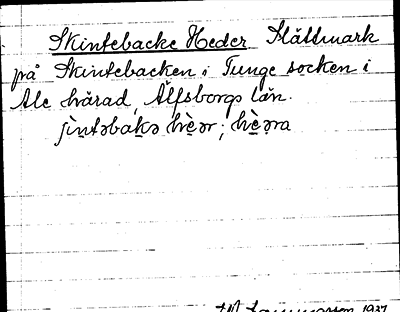 Skintebacke Heder. Slättmark
på Skintebacken i Tunge socken i
Ale härad, Älfsborgs län.
ʃìntəbakə hèər; hèəra
1937